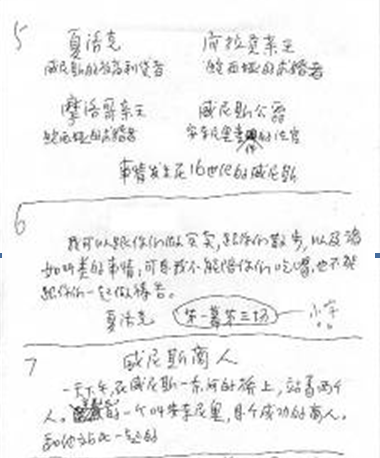 5
夏洛克 阿拉贡亲王
威尼斯的放高利贷者 鲍西娅的求婚者
摩洛哥亲王 威尼斯公爵
鲍西娅的求婚者 安东尼奥案件的法官
事情发生在16世纪的威尼斯
6
我可以跟你们做买卖,跟你们散步,以及诸
如此类的事情,可是我不能陪你们吃喝,也不能
跟你们一起做祷告。
夏洛克 第一幕第三场 小字
7 威尼斯商人
一天下午,在威尼斯一条河的桥上,站着两个
人。一个叫安东尼奥,是个成功的商人。
和他站在一起的